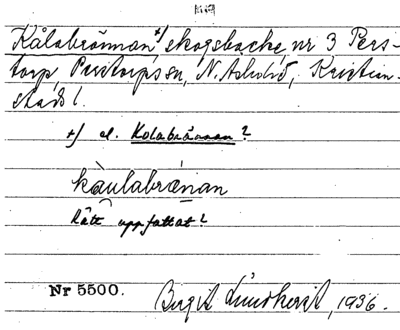 Kålabrännan +) skogsbacke, nr 3 Pers-
torp, Perstorps sn, N. Åsbo hd, Kristian-
stads l.
+) el. Kolabrännan?
kàulabrænan
Rätt uppfattat?
Nr 5500. Birgit Lundkvist, 1936.